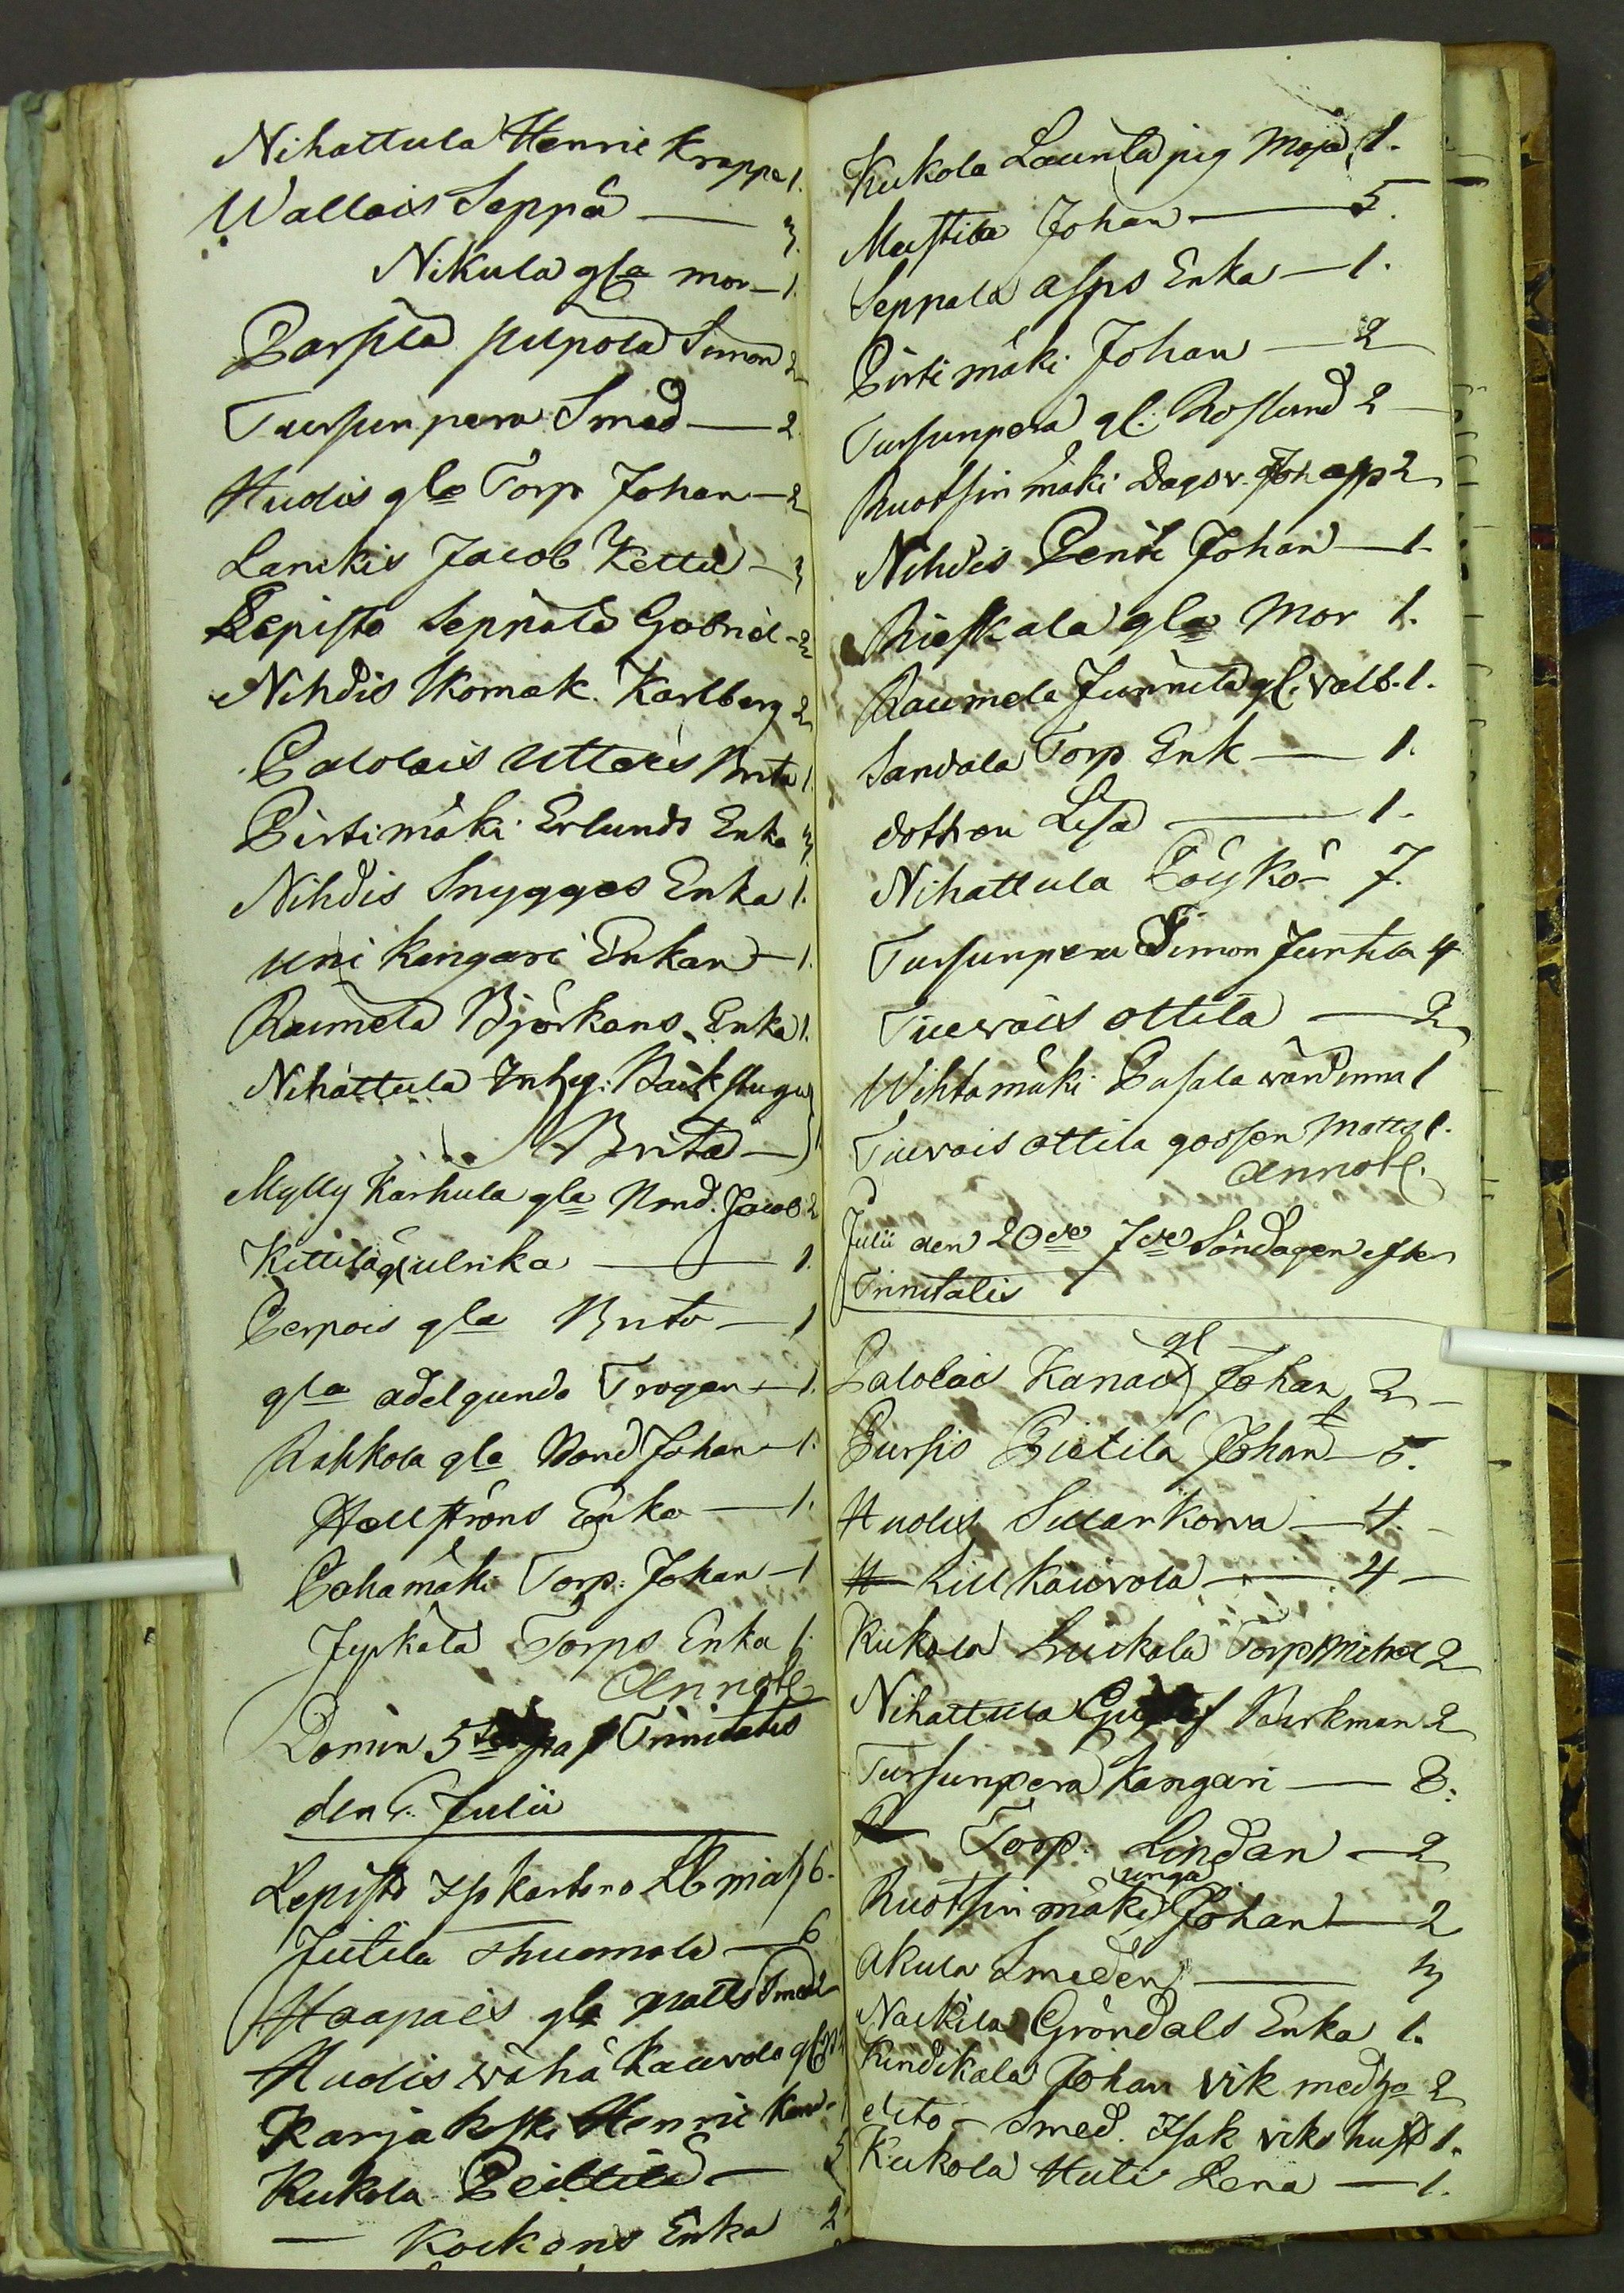 Nihattula Henric Krappe 1.
Wallais Seppä — 3.
Nikula gla mor — 1.
Parsila pilpola Simon 2
Tursun pera Smed — 2.
Hudis gla Torp Johan — 2
Lanikis Jacob Kettu — 3
Lepistö Seppälä Gabriel — 2
Nihdis Skomak. Karlberg 2
Palolais Utters Brita 1.
Pirtimäki Erlunds Enka 3.
Nihdis Snygges Enka 1.
uni kangari Enkan — 1.
Raumela Björkans Enka 1.
Nihattula Inhy: Backstugu
Brita — 1
Mylly Karhula gla Bond. Jacob 2
Kittilä gl ulrika — 1.
Perpois gla Brita — 1
gla adelgunda Trogen — 1.
Rahkola gla Bond Johan — 1.
Hellströms Enka — 1.
Pahamäki Torp: Johan — 1
Jypkälä Torps Enka 1.
Annote
Domin 5te p Trinitatis
den 6. Julii
Lepistö Kartano 6.
Jutila Thuomola — 6
Haapais gla Matts Smed 2
Hudis wähä Kauvola gl
Karjakoski Henric
Kukola Peittilä — 3
— Kockons Enka 2
Kukola Launila pig Maja 1.
Mustila Johan — 5.
Seppälä afsps Enka — 1.
Pirtimäki Johan — 2
Tursunpera gl. Roslund 2
Ruotsinmäki Dagsv. Joh 2
Nihdis Pentti Johan — 1.
Rieskala gla Mor 1.
Raumela Junnila gl. valb. 1.
Sandala Torp Enk — 1.
dottren Lisa — 1.
Nihattula Pöykö — 7.
Tursunpera Simon Juntila 4
Tiuvais ottila — 2
Wihtamäki Pasala värdinna 1
Tiuvais ottila gossen Matts 1.
Annote.
Julii den 20de 7de Söndagen efter
Trinitatis
Palolais Kanais gl Johan 2 —
Pursis Pietilä Johan — 5.
Hudis Suurkorva — 4. —
Lill Kauvola — 4 —
Kukola Luckala Torp Michel 2
Nihattula Gustaf Backman 2
Tursunpera Kangari — 8.
Torp. Lindan — 2
Ruotsinmäki unga Johan — 2
Akula Smeden — 3
Nackila Gröndals Enka 1.
Kindikala Johan Vik med 2
dito — Smed. Isak viks hust 1.
Kukola Huti Lena — 1.